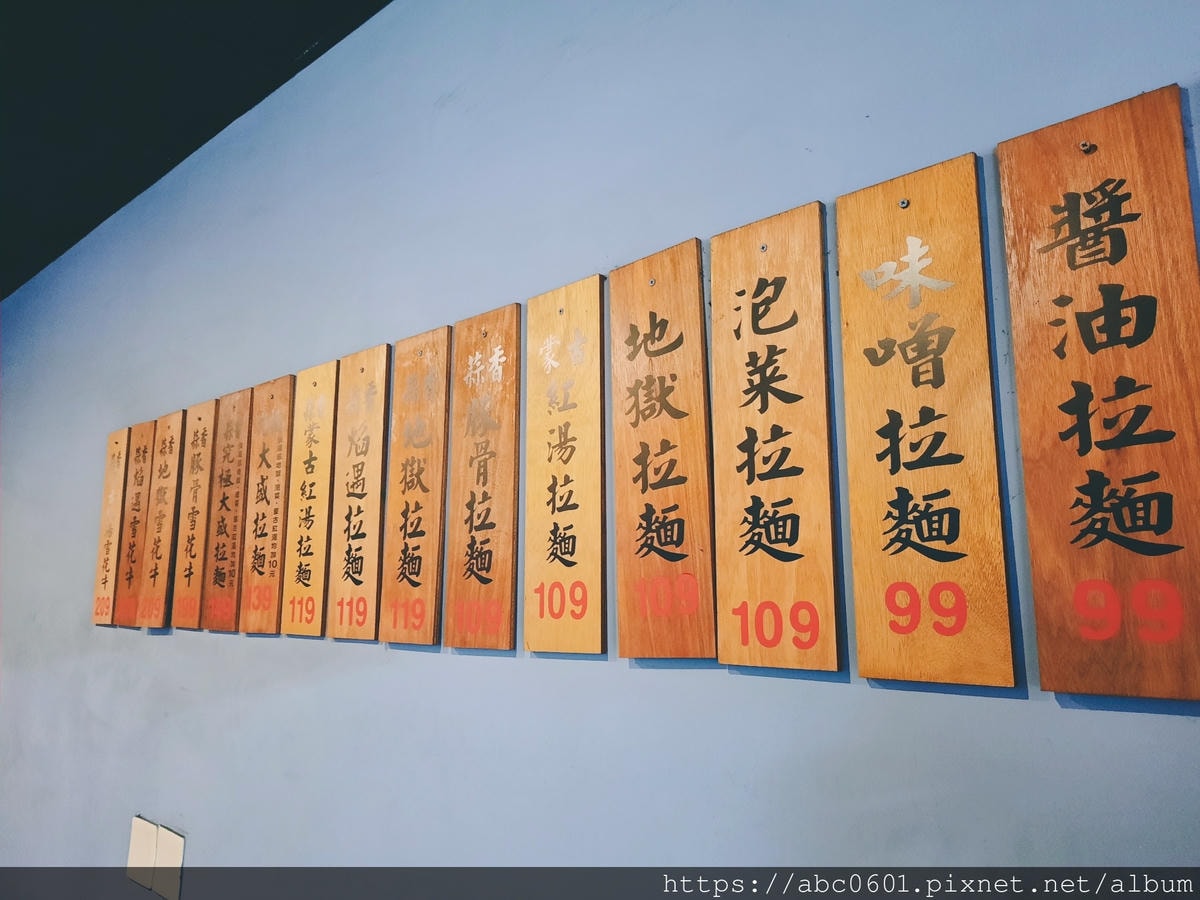 醬油拉麵
99
味噌拉麵
99
泡菜拉麵
109
地獄拉麵
109
蒙古紅湯拉麵
109
蒜香豚骨拉麵
109
地獄拉麵
119
焰遇拉麵
119
蒙古紅湯拉麵
119
大盛拉麵
139
究極大盛拉麵
蒜香豚骨雪花牛
蒜香地獄雪花牛
209
蒜香焰遇雪花牛
雪花牛
209
https://abc0601.pixnet.net/album